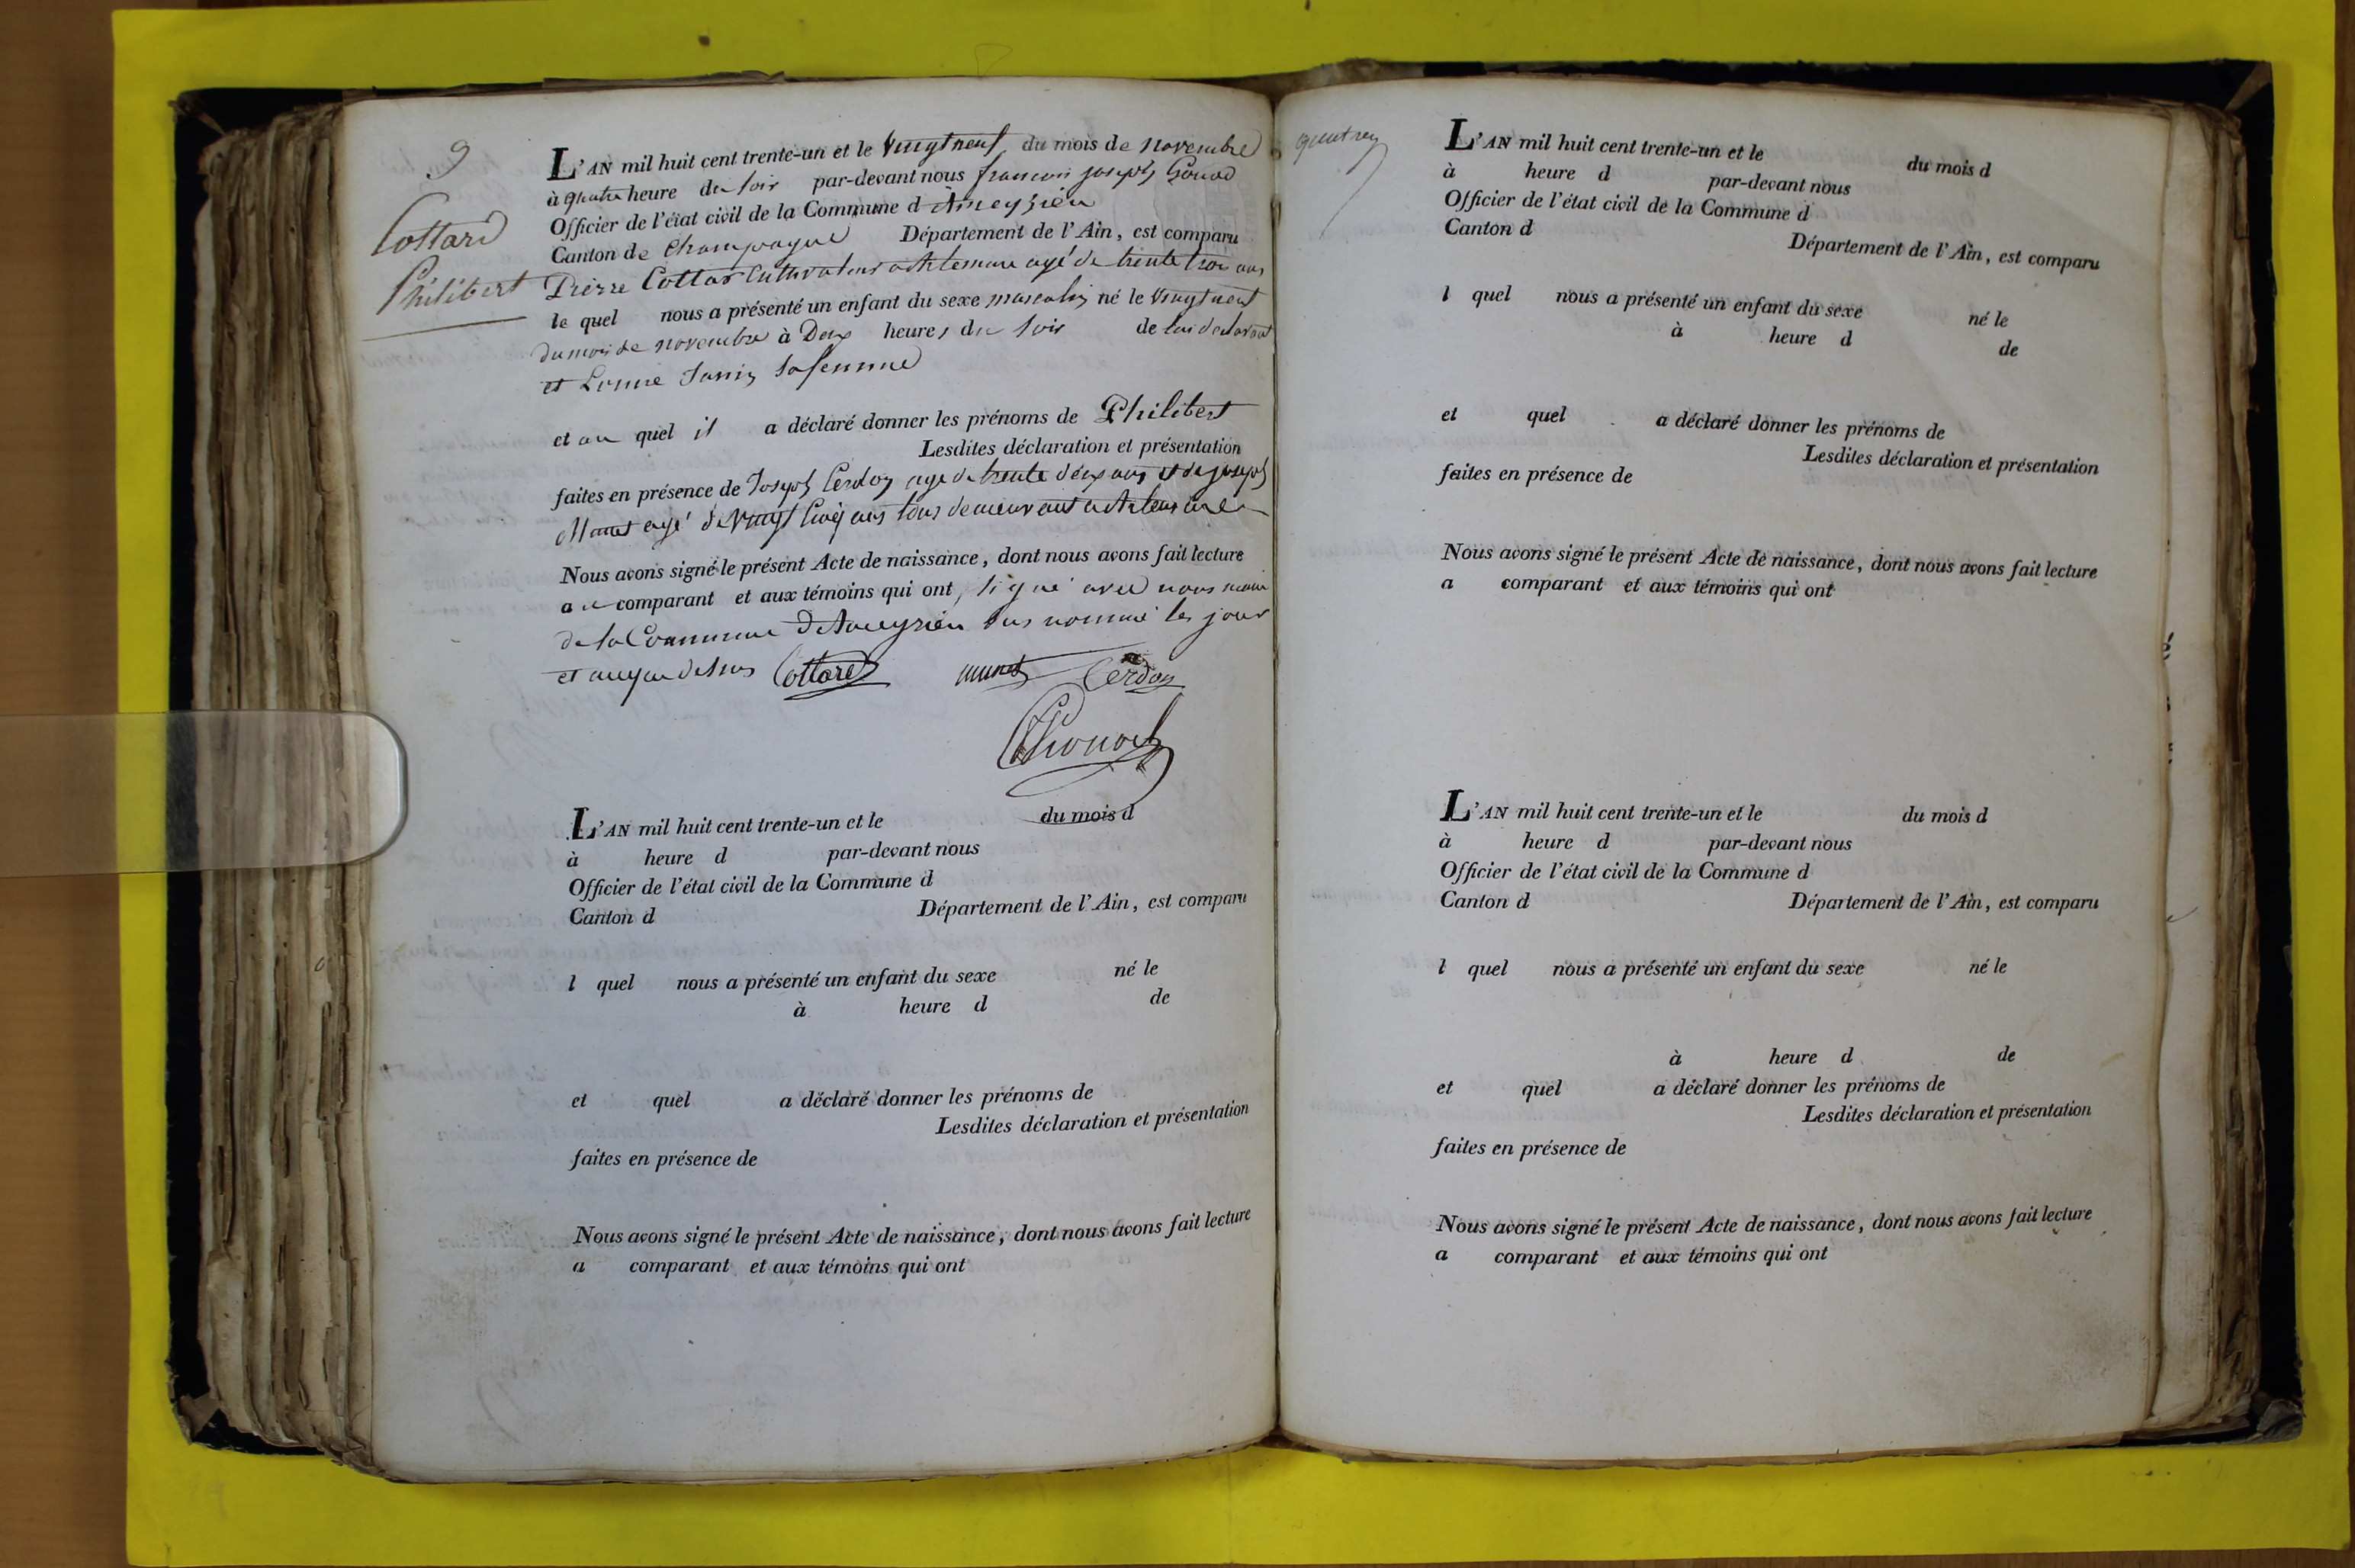 9
Cottard
Philibert
L'AN mil huit cent trente-un et le vingt neuf du mois de novembre
à quatre heure du soir par-devant nous francois joseph Gonod
Officier de l'état civil de la Commune d'Ameyzieu
Canton de Champagne Département de l'Ain, est comparu
Pierre Cottar Cultivateur a Artemare agé de trente trois ans
le quel nous a présenté un enfant du sexe masculin né le vingt neuf
du mois de novembre à Deux heures du soir de lui declarant
et sa femme
et au quel il a déclaré donner les prénoms de Philibert
Lesdites déclaration et présentation
faites en présence de Joseph Cerdon age de trente deux ans et de joseph
Munet agé de vingt Cinq ans tous demeurant a Artemare
Nous avons signé le présent Acte de naissance, dont nous avons fait lecture
au comparant et aux témoins qui ont, signé avec nous maire
de la Commune D'Ameyzieu sus nommé les jour
et an que dessus Cottard munet Cerdon
L'AN mil huit cent trente-un et le du mois d
à heure d par-devant nous
Officier de l'état civil de la Commune d
Canton d Département de l'Ain, est comparu
l quel nous a présenté un enfant du sexe né le
à heure d de
et quel a déclaré donner les prénoms de
Lesdites déclaration et présentation
faites en présence de
Nous avons signé le présent Acte de naissance, dont nous avons fait lecture
a comparant et aux témoins qui ont
L'AN mil huit cent trente-un et le du mois d
à heure d par-devant nous
Officier de l'état civil de la Commune d
Canton d Département de l'Ain, est comparu
l quel nous a présenté un enfant du sexe né le
à heure d de
et quel a déclaré donner les prénoms de
Lesdites déclaration et présentation
faites en présence de
Nous avons signé le présent Acte de naissance, dont nous avons fait lecture
a comparant et aux témoins qui ont
L'AN mil huit cent trente-un et le du mois d
à heure d par-devant nous
Officier de l'état civil de la Commune d
Canton d Département de l'Ain, est comparu
l quel nous a présenté un enfant du sexe né le
à heure d de
et quel a déclaré donner les prénoms de
Lesdites déclaration et présentation
faites en présence de
Nous avons signé le présent Acte de naissance, dont nous avons fait lecture
a comparant et aux témoins qui ont